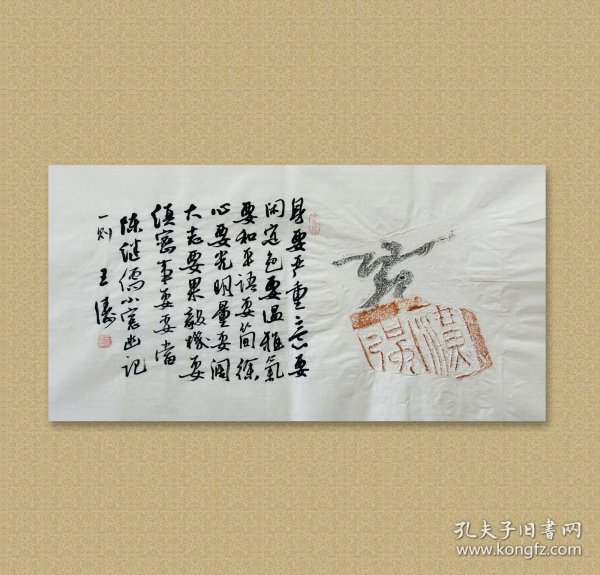 身要严重意要
闲定色要温雅气
要和平语要简徐
心要光明量要阔
大志要果毅机要
缜密事要妥当
陈继儒小窗幽记
一则 王涛
孔夫子旧书网
www.kongfz.com